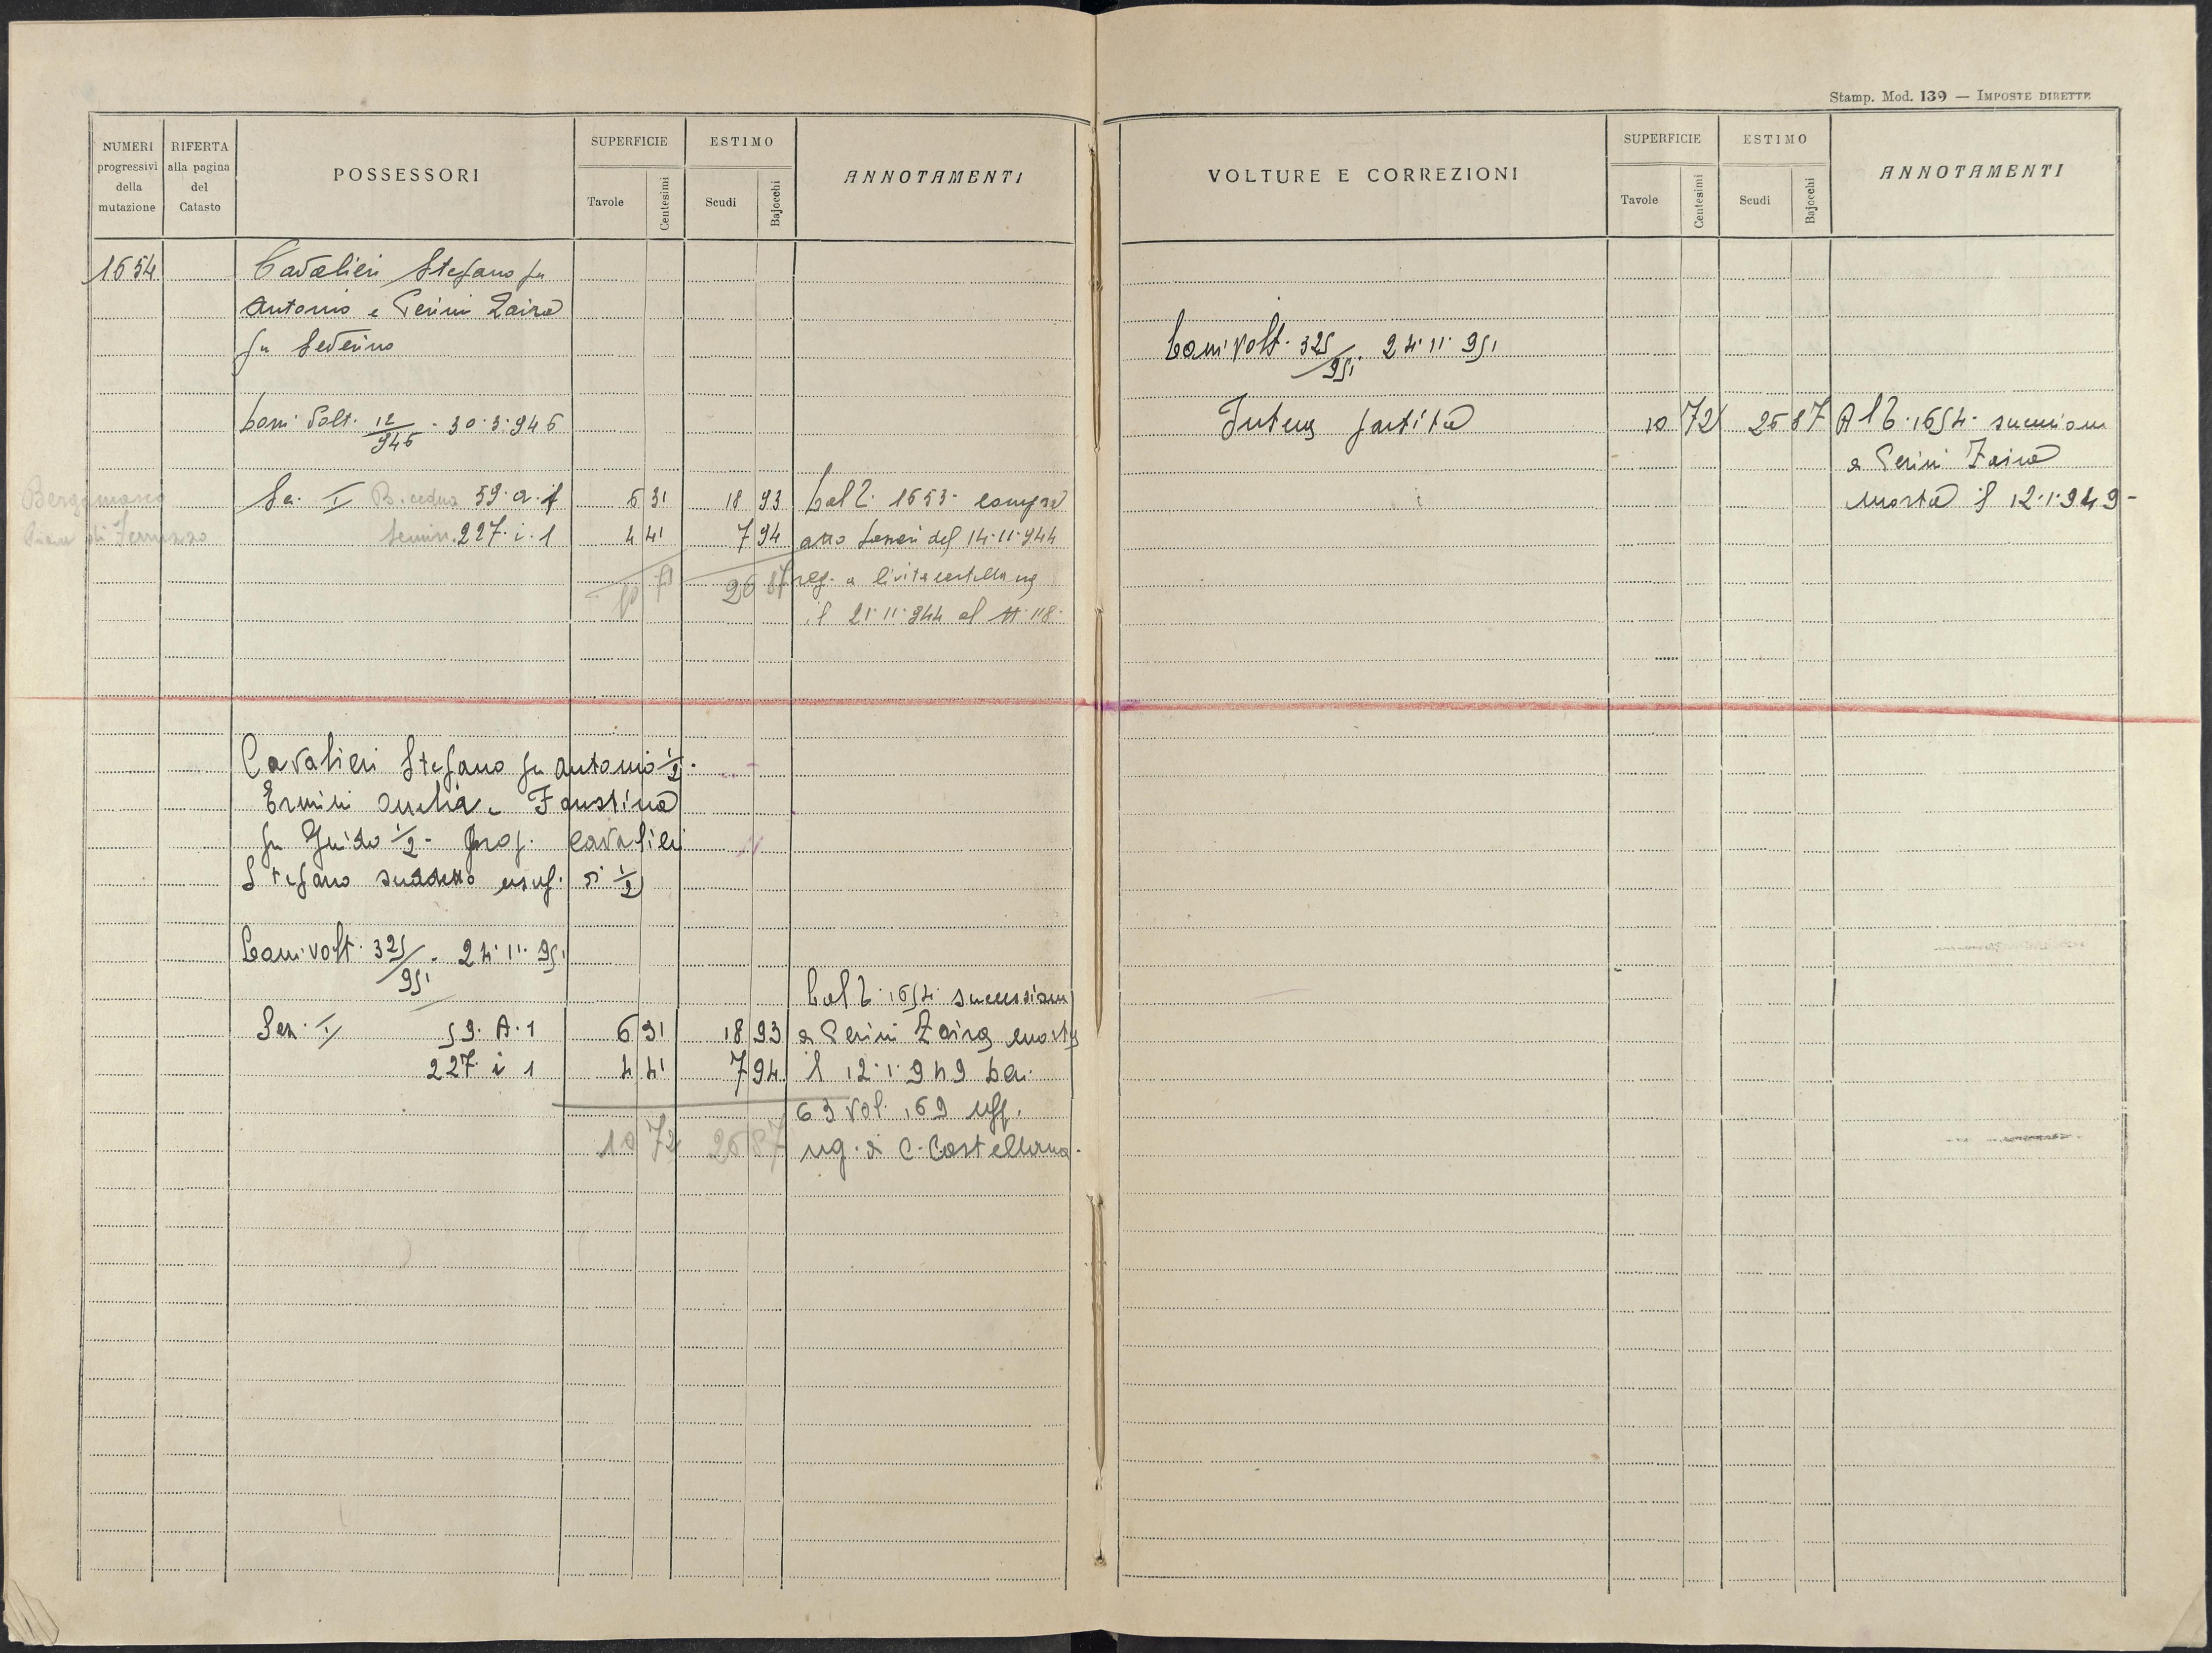 Stamp. Mod. 139 — IMPOSTE DIRETTE
NUMERI progressivi della mutazione
RIFERTA alla pagina del Catasto
POSSESSORI
SUPERFICIE
Tavole
Centesimi
ESTIMO
Scudi
Bajocchi
ANNOTAMENTI
1654
Cavalieri Stefano fu
Antonio e Perini Zaira
fu Severino
12/946 - 30.3.946
Bergamasco
Se. I B. cedua 59. a. 1 6 31 18 93 Dal C. 1653 - compra
Semin. 227. i. 1 4 41 7 94 atto del 14.11.944
26 87 reg. a Civitacastellana
il 21.11.944 al N. 118.
Cavalieri Stefano fu Antonio 1/2 -
Ermini Amelia e Faustina
fu Guido 1/2 - prop. Cavalieri
Stefano suddetto usuf. di 1/2
volt. 325/951 - 24.11.951
Dal C. 1654 successione
Sez. I 59. A. 1 6 31 18 93 a Perini Zaira morta
227. i 1 4 41 7 94 il 12.1.949
63 vol. 169 uff.
10 72 26 87 reg. di C. Castellana -
VOLTURE E CORREZIONI
SUPERFICIE
Tavole
Centesimi
ESTIMO
Scudi
Bajocchi
ANNOTAMENTI
volt. 325/951. 24.11.951
Intera partita 10 72 26 87 Al C. 1654. successione
a Perini Zaira
morta il 12.1.949 -